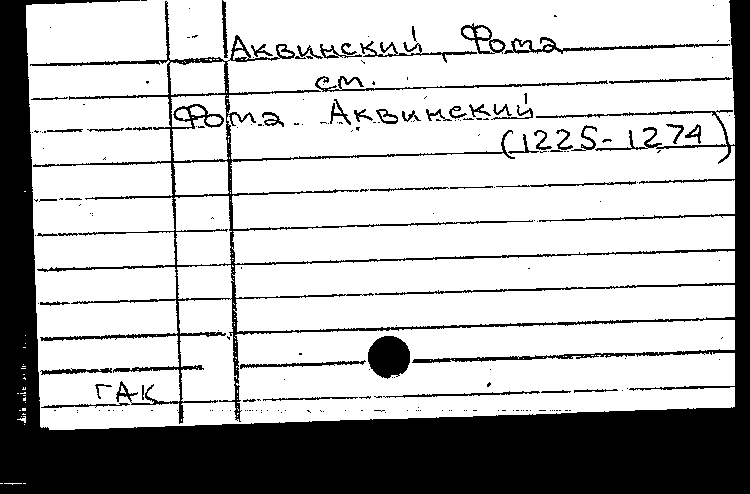 Аквинский, Фома
см.
Фома Аквинский
(1225-1274)
ГАК